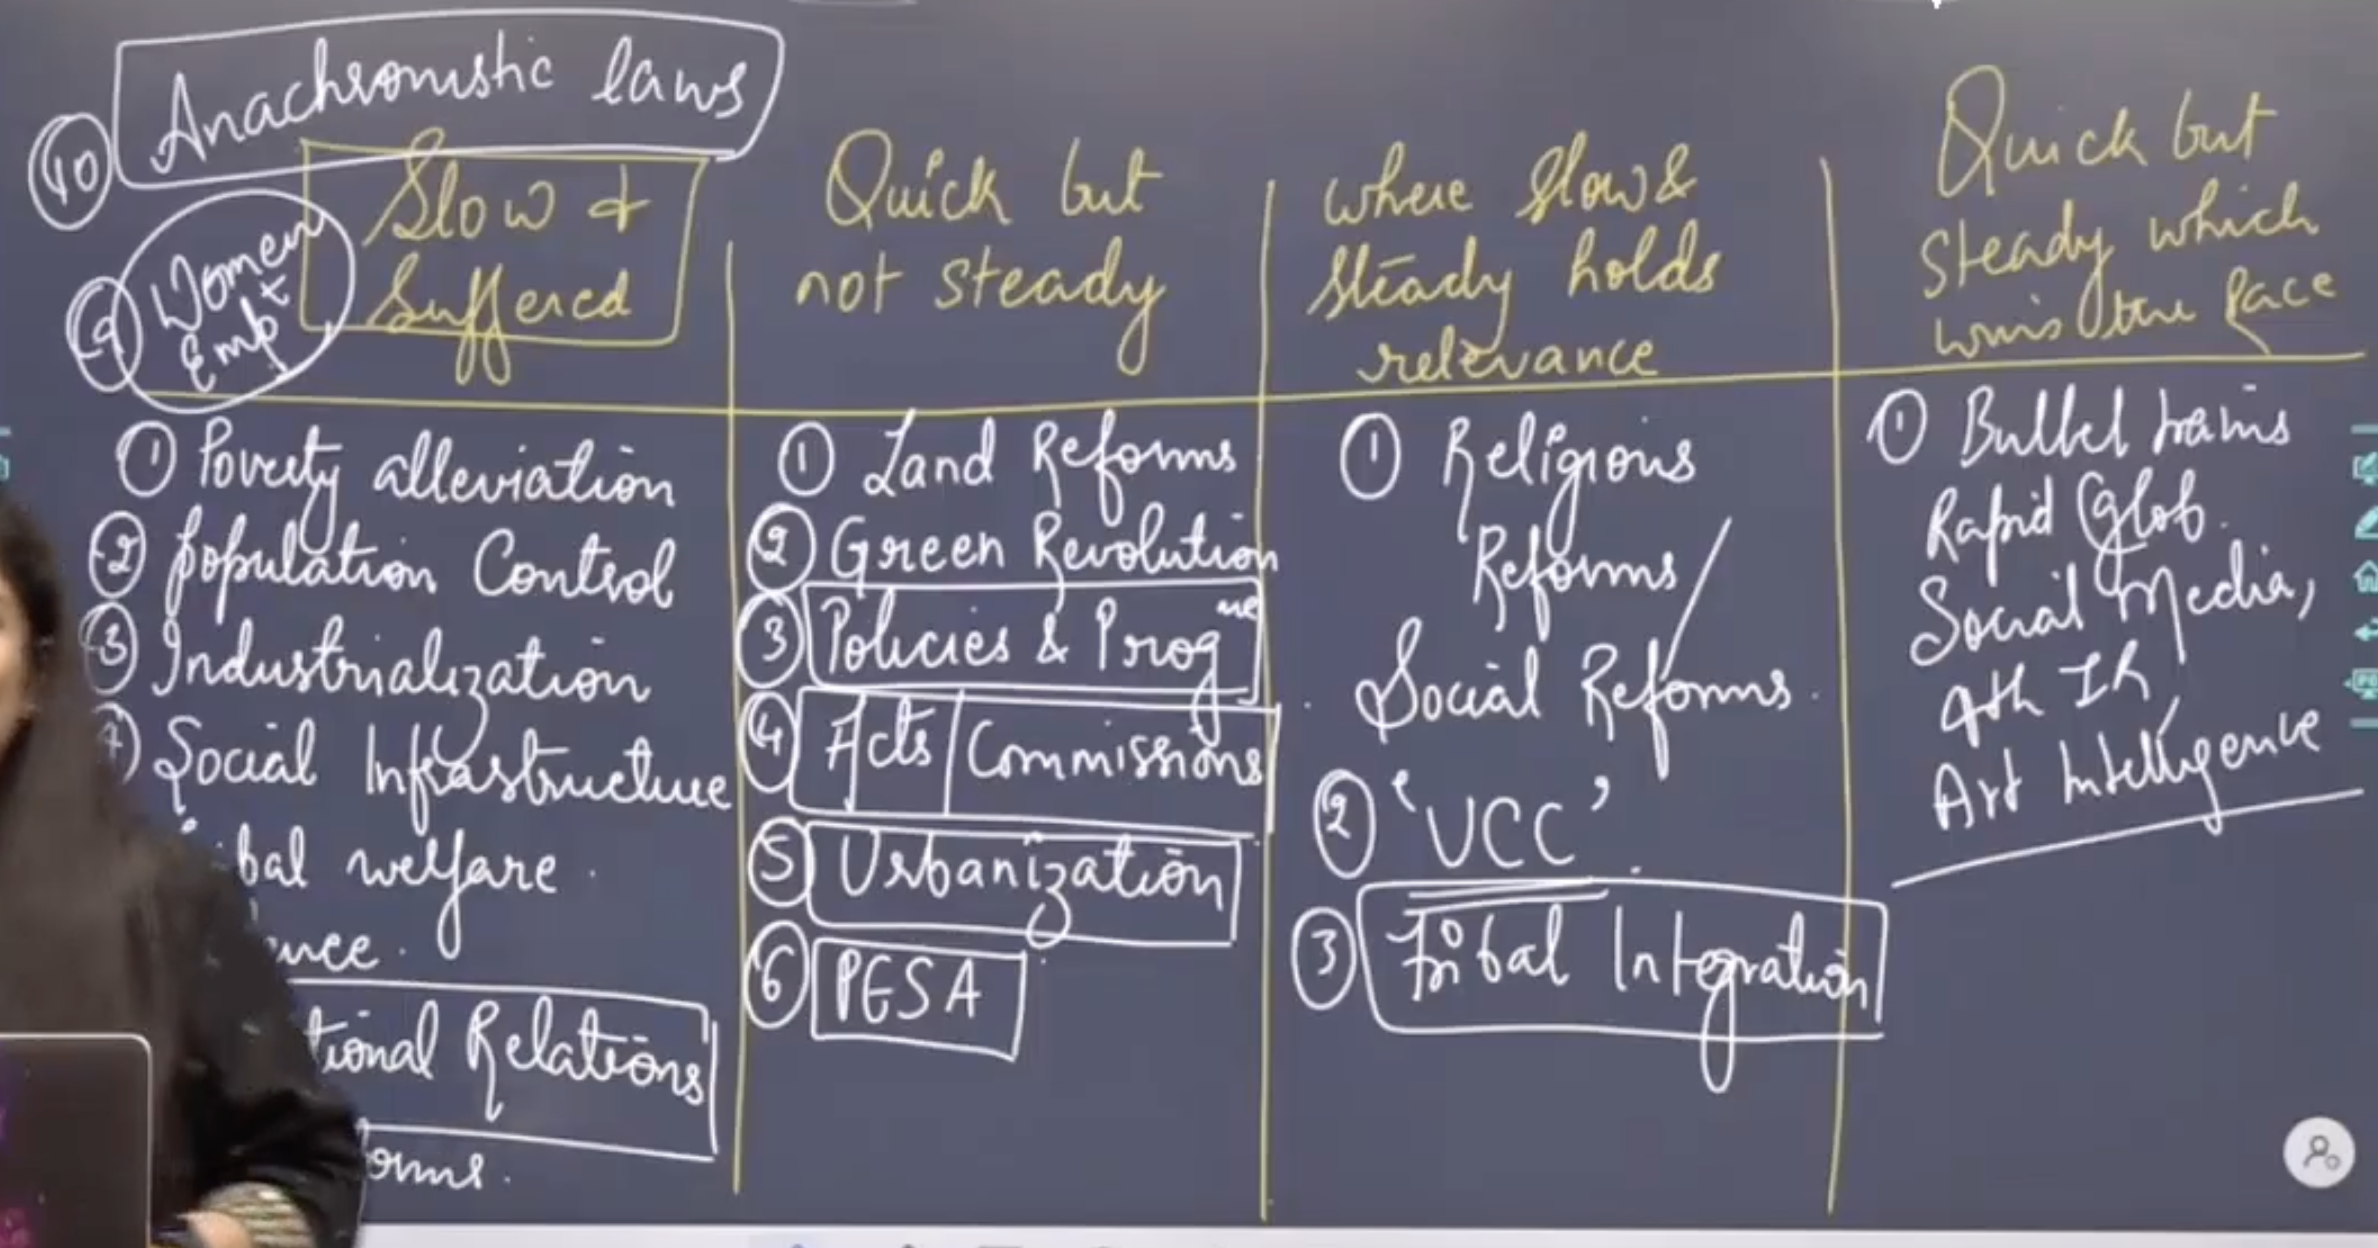 10 Anachronistic laws
9 Women Emp^t
Slow & Suffered
1 Poverty alleviation
2 Population Control
3 Industrialization
Social Infrastructure
welfare.
Relations
Quick but
not steady
1 Land Reforms
2 Green Revolution
3 Policies & Prog^me
4 Acts/Commissions
5 Urbanization
6 PESA
where slow &
steady holds
relevance
1 Religious
Reforms/
Social Reforms.
2 'UCC'.
3 Tribal Integration
Quick but
steady which
wins the Race
1 Bullet trains
Rapid Glob.
Social Media,
4th IR,
Art Intelligence